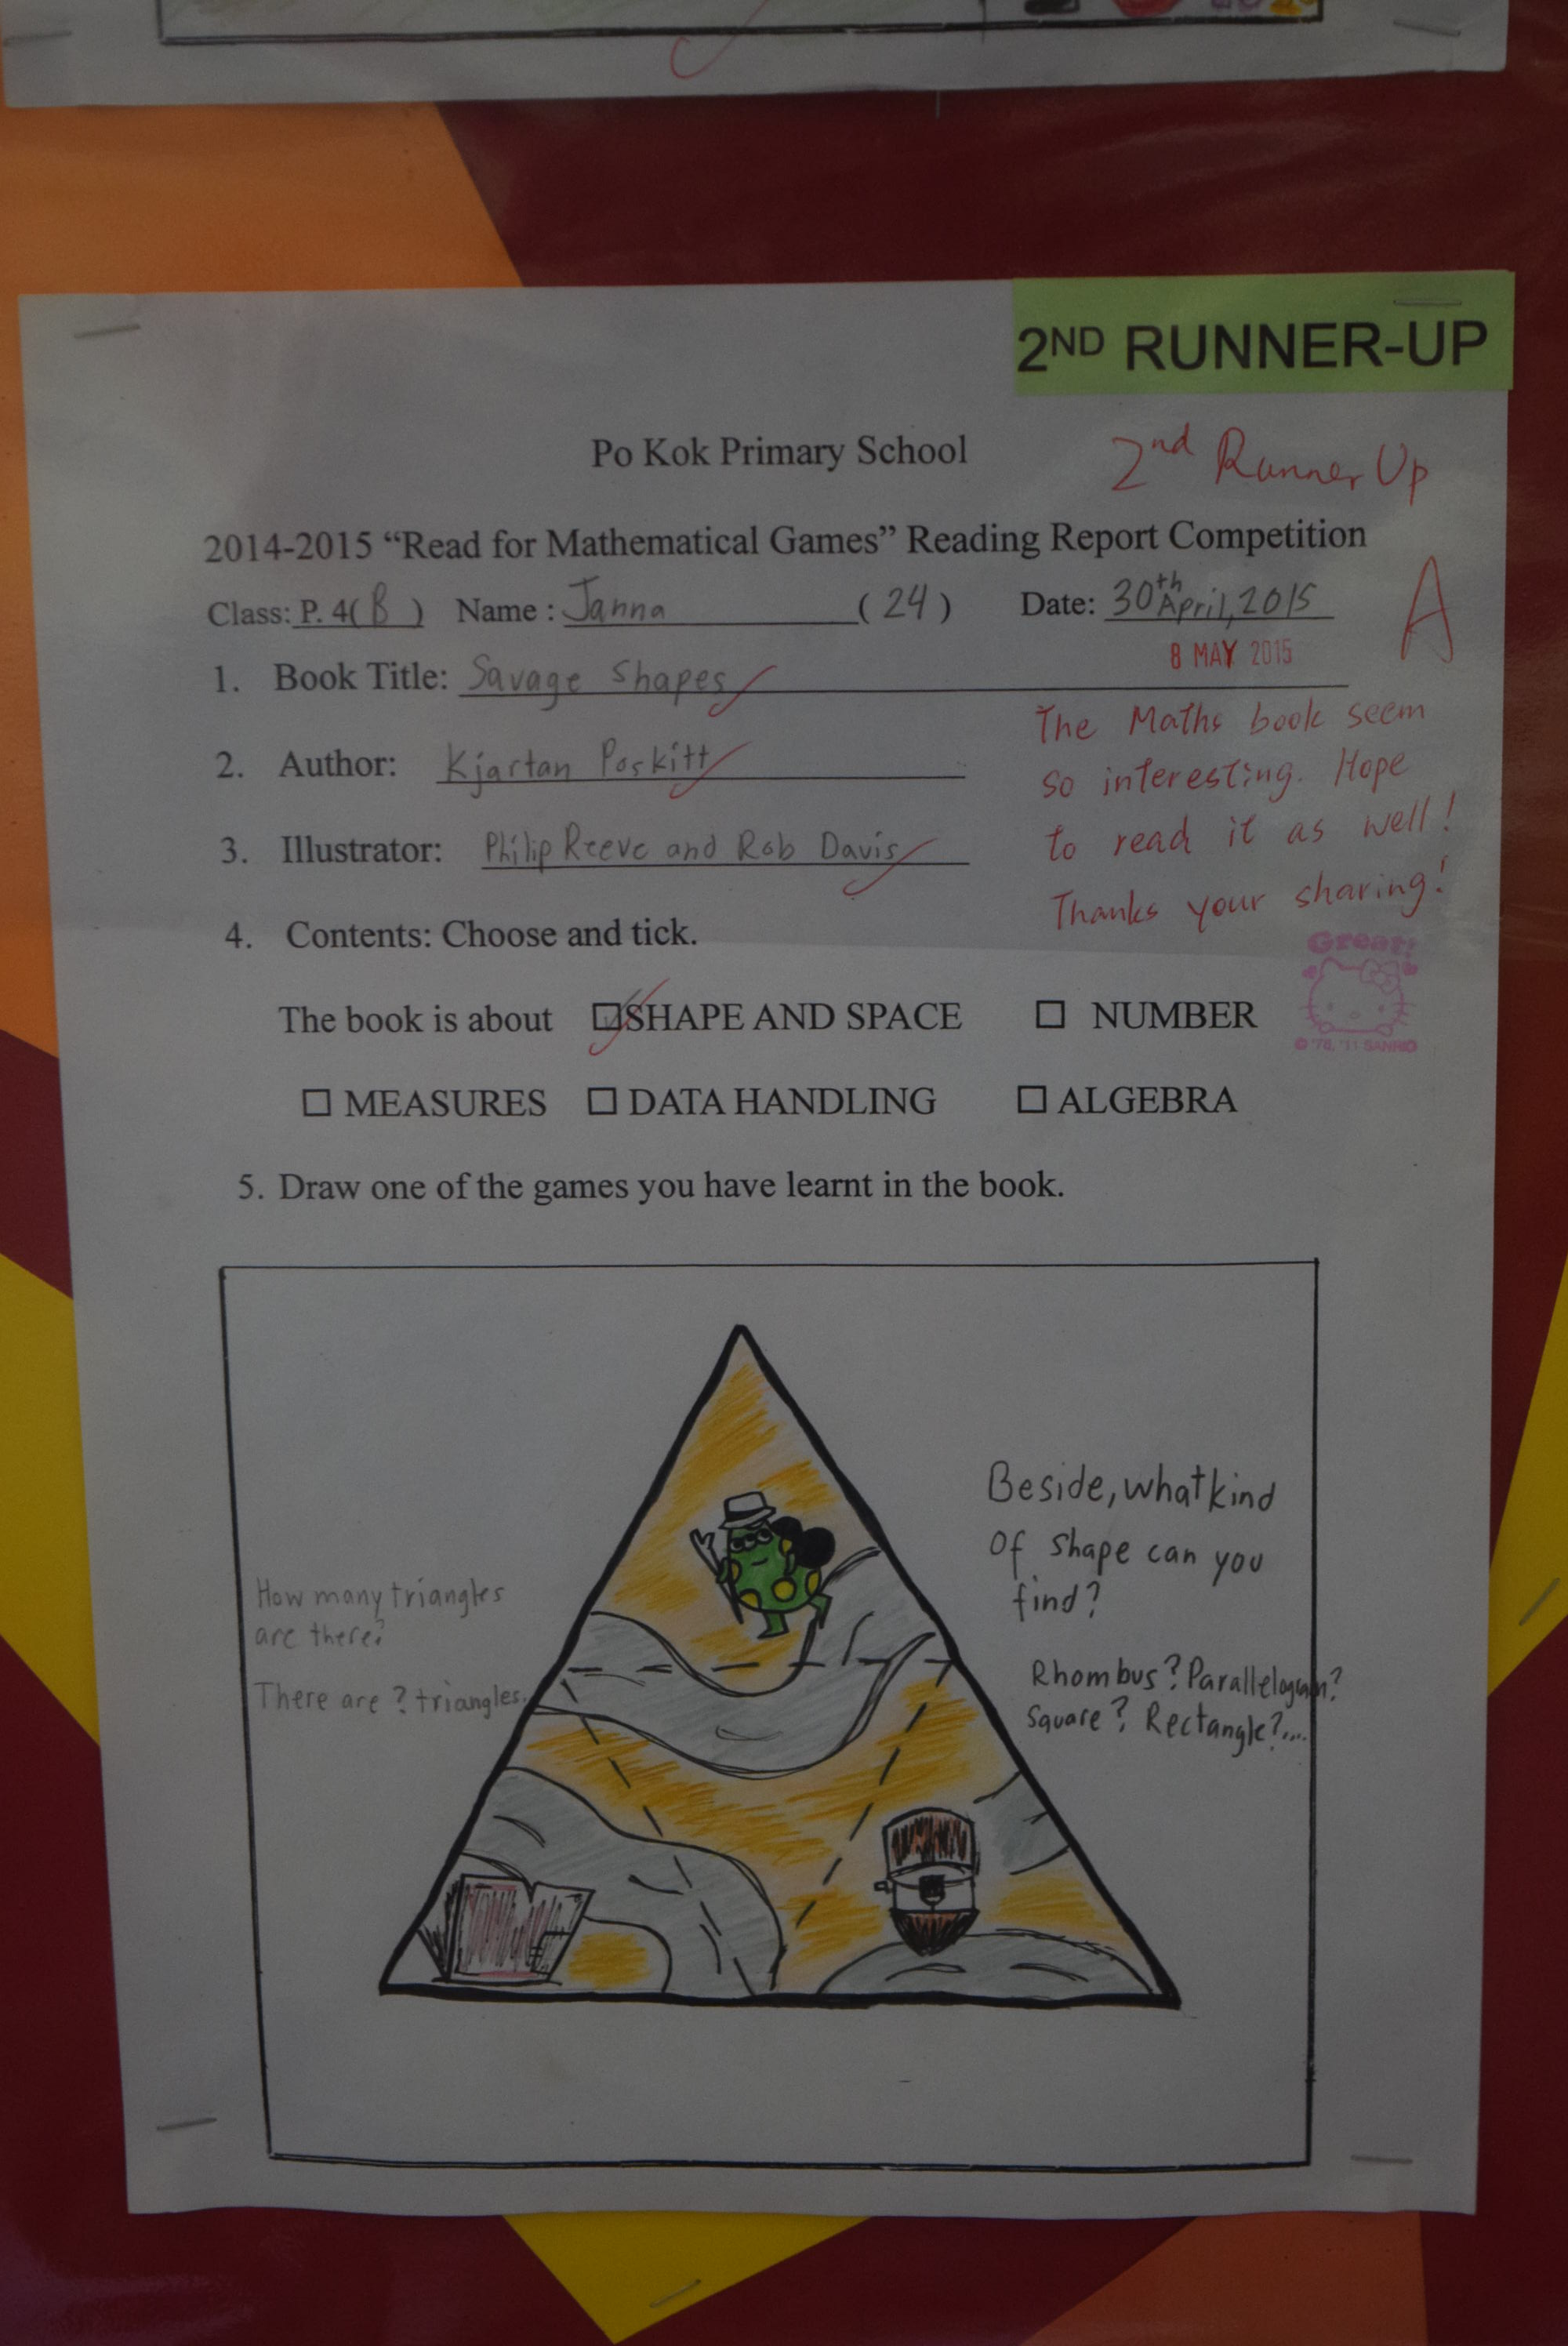 2ND RUNNER-UP
Po Kok Primary School
2nd Runner Up
2014-2015 “Read for Mathematical Games” Reading Report Competition
Class: P. 4( B ) Name : Janna ( 24 ) Date: 30th April, 2015
A
8 MAY 2015
1. Book Title: Savage Shapes
2. Author: Kjartan Poskitt
3. Illustrator: Philip Reeve and Rob Davis
The Maths book seem
so interesting. Hope
to read it as well!
Thanks your sharing!
4. Contents: Choose and tick.
Great!
The book is about SHAPE AND SPACE NUMBER
© '76, '11 SANRIO
MEASURES DATA HANDLING ALGEBRA
5. Draw one of the games you have learnt in the book.
How many triangles
are there?
There are ? triangles.
Beside, what kind
of shape can you
find?
Rhombus? Parallelogram?
Square? Rectangle?....